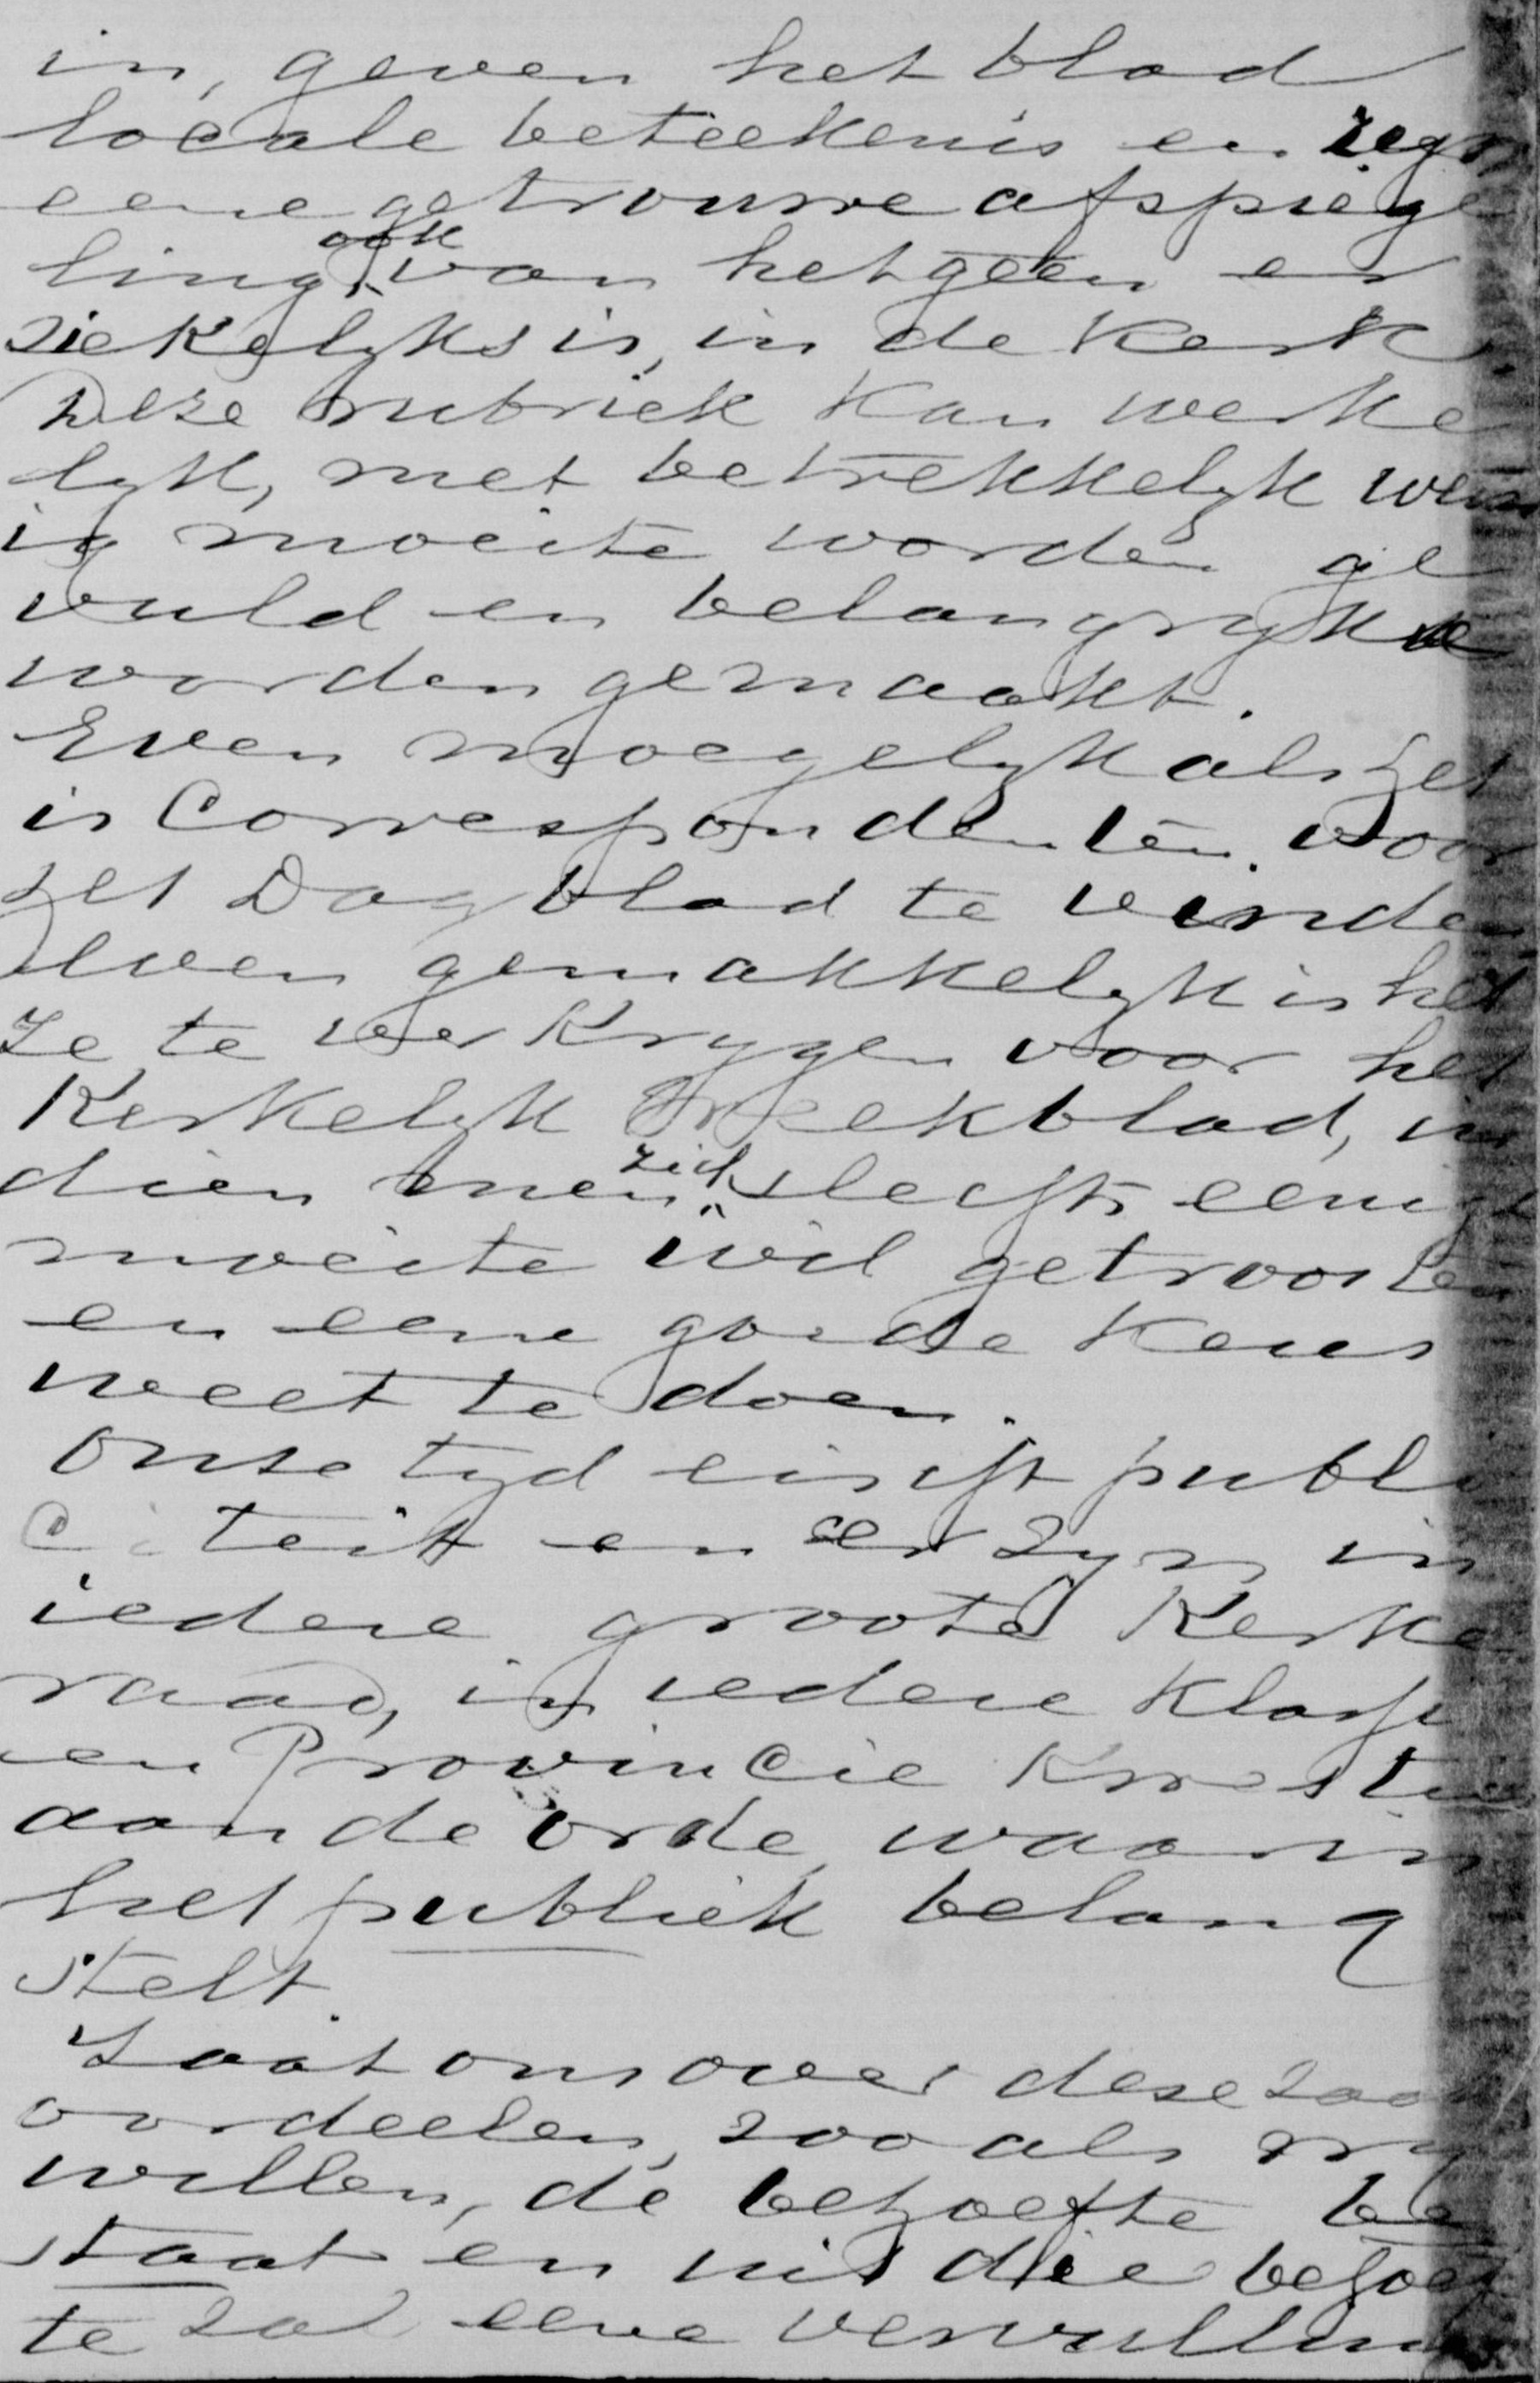 in, geven het blad
locale beteekenis en zyn
eene getrouwe afspiege
ling ook van hetgeen er
ziekelyks is, in de Kerk.
Deze rubriek kan werke
lyk, met betrekkelyk wein
ig moeite worden ge
vuld en belangryk
worden gemaakt.
Even moegelyk als het
is Correspondenten voor
het Dagblad te vinden
even gemakkelyk is het
ze te verkrygen voor het
Kerkelyk Weekblad, in
dien men zich slechts eenige
moeite wil getroosten
en eene goede keus
weet te doen.
Onze tyd eischt publi
citeit en er zyn in
iedere groote Kerke
raad, in iedere Klasse
en Provincie kwestie
aan de orde, waarin
het publiek belang
stelt.
Laat ons over deze zaak
oordeelen, zoo als wy
willen, de behoefte be
staat en uit die behoef
te zal eene vervulling